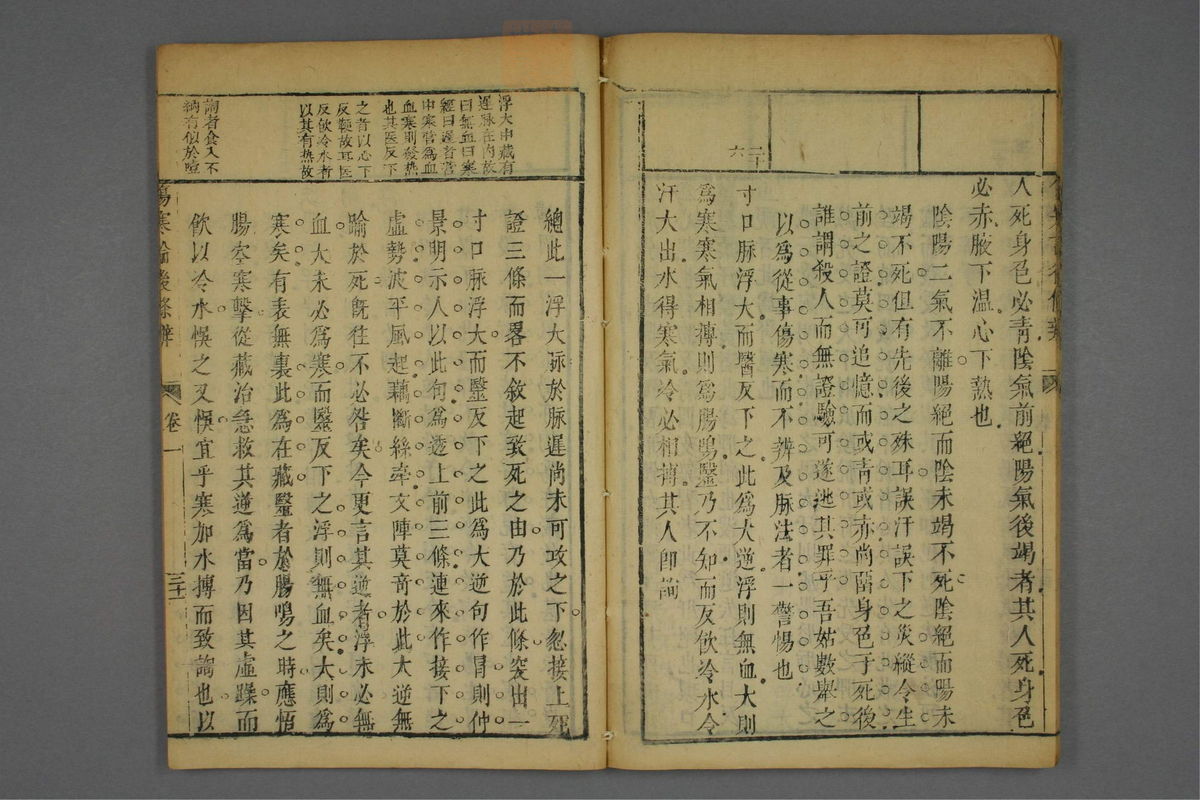 人死身色必青陰氣前絕陽氣後竭者其人死身色
必赤腋下温心下熱也
陰陽二氣不離陽絕而陰未竭不死陰絕而陽未
竭不死但有先後之殊耳誤汗誤下之災縱今生
前之證莫可追憶而或青或赤尚留身色于死後
誰謂殺人而無證驗可遂逃其罪乎吾姑數舉之
以爲從事傷寒而不辨及脉法者一警惕也
二十六
寸口脉浮大而醫反下之此爲大逆浮則無血大則
爲寒寒氣相搏則爲腸鳴醫乃不知而反飲冷水令
汗大出水得寒氣冷必相搏其人卽䭇
浮大中藏有
遲脉在内故
曰無血曰寒
經曰遲者營
中寒營爲血
血寒則發熱
也其医反下
之者以心下
反鞕故耳医
反飲冷水者
以其有热故
䭇者食入不
納有似於噎
總此一浮大脉於脉遲尚未可攻之下忽接上死
證三條而畧不敘起致死之由乃於此條突出一
寸口脉浮大而醫反下之此爲大逆句作冒則仲
景明示人以此句爲透上前三條連來作接下之
虛勢波平風起藕斷絲牽文陣莫奇於此大逆無
踰於死旣往不必咎矣今更言其逆者浮未必無
血大未必爲寒而醫反下之浮則無血矣大則爲
寒矣有表無裏此爲在藏醫者於腸鳴之時應悟
腸空寒擊從藏治急救其逆爲當乃因其虛躁而
飲以冷水悞之又悞宜乎寒加水搏而致䭇也以
傷寒論後條辨
卷一
三十一